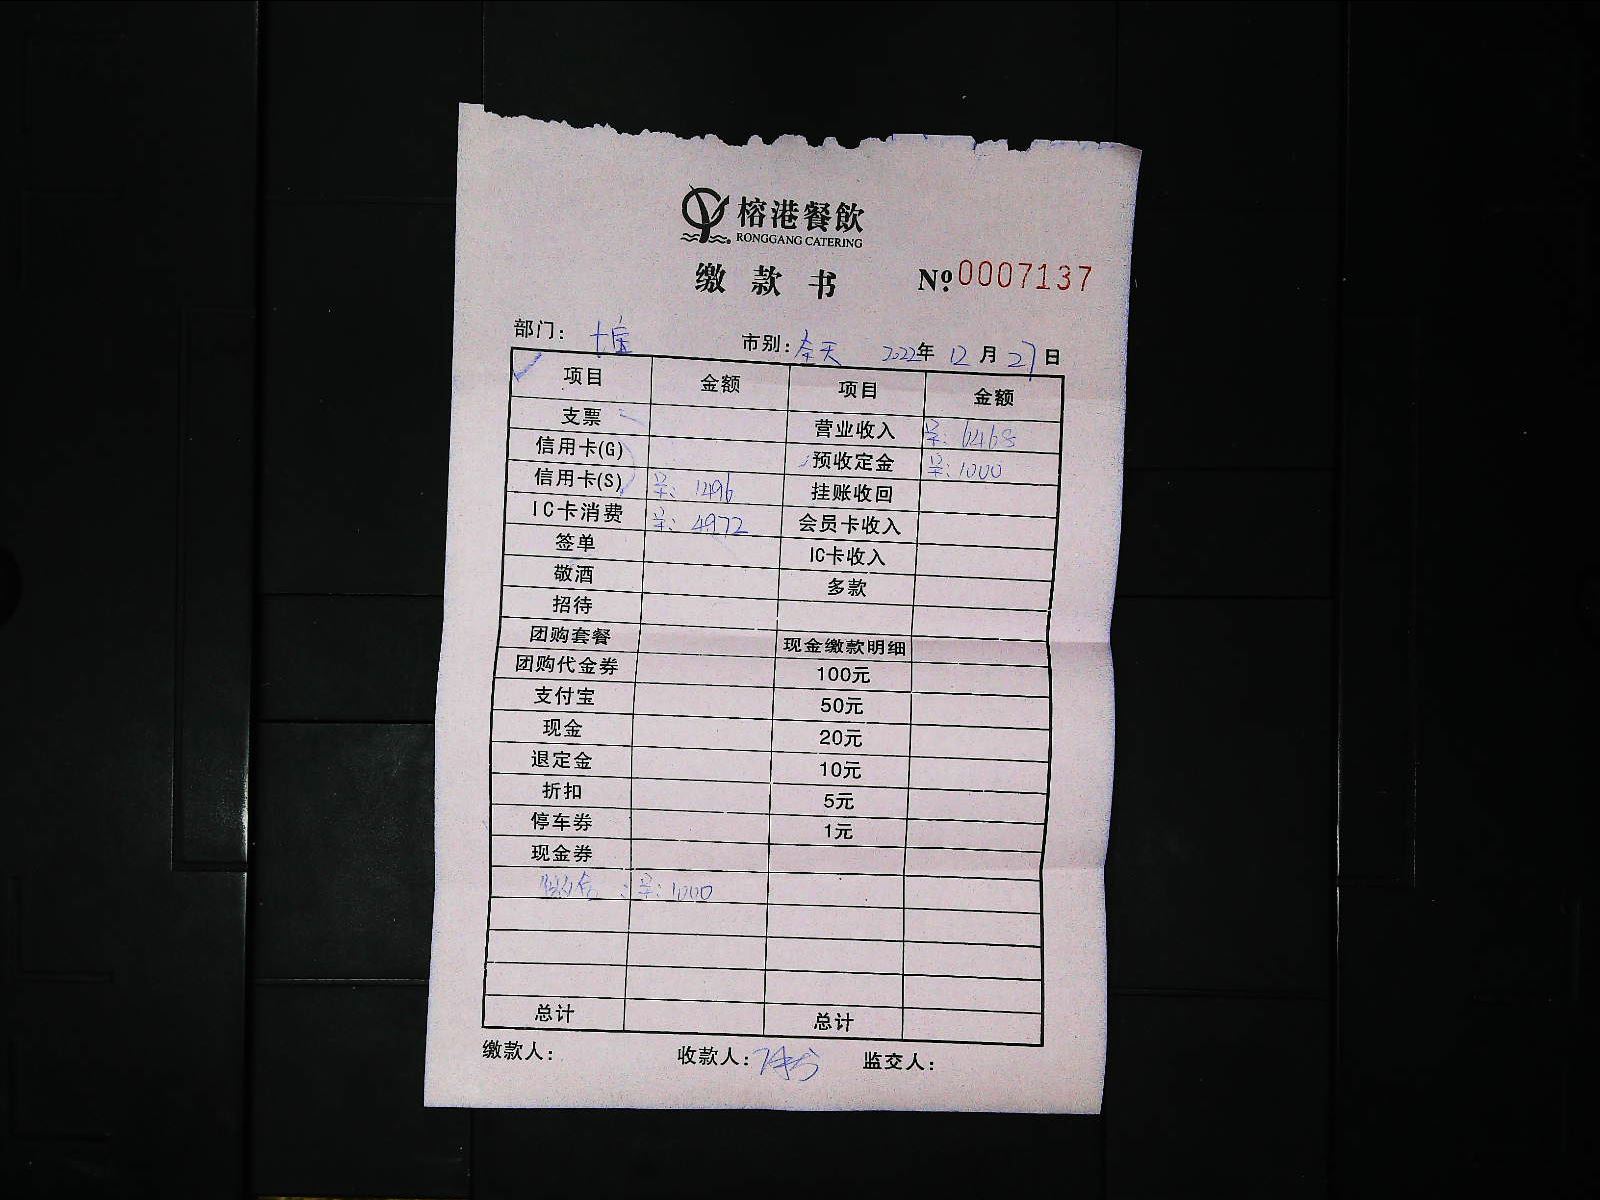 榕港餐飲
RONGGANG CATERING
缴款书 №0007137
部门： 市别：全天 2022年12月27日
项目 金额 项目 金额
支票 营业收入 6468
信用卡(G) 预收定金 1000
信用卡(S) 1496 挂账收回
IC卡消费 4972 会员卡收入
签单 IC卡收入
敬酒 多款
招待
团购套餐 现金缴款明细
团购代金券 100元
支付宝 50元
现金 20元
退定金 10元
折扣 5元
停车券 1元
现金券
1000
总计 总计
缴款人： 收款人： 监交人：